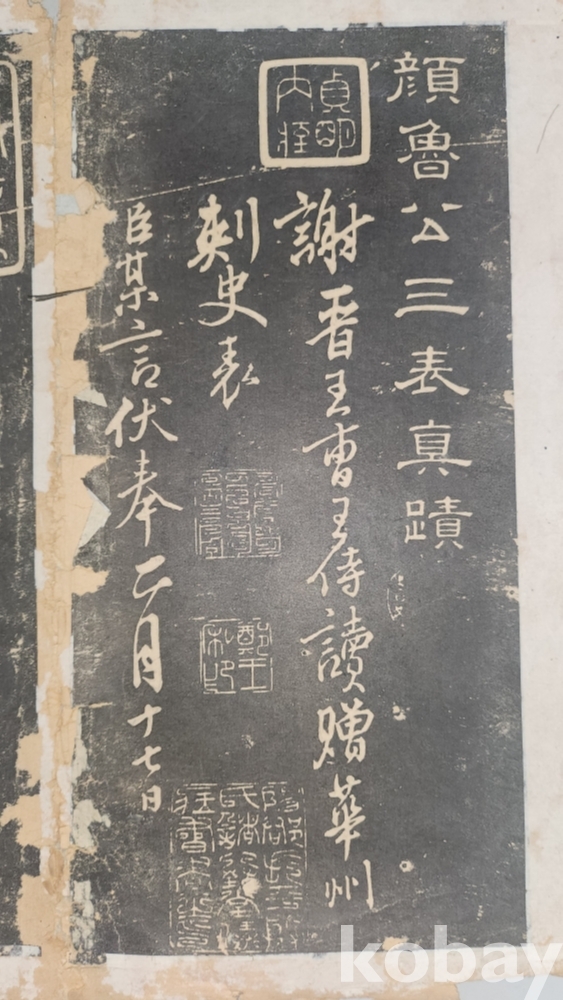 顔魯公三表真蹟
貞明
内
謝晋王曹王侍讀贈華州
刺史表
鄭王
臣某言伏奉二月十七日
kobay